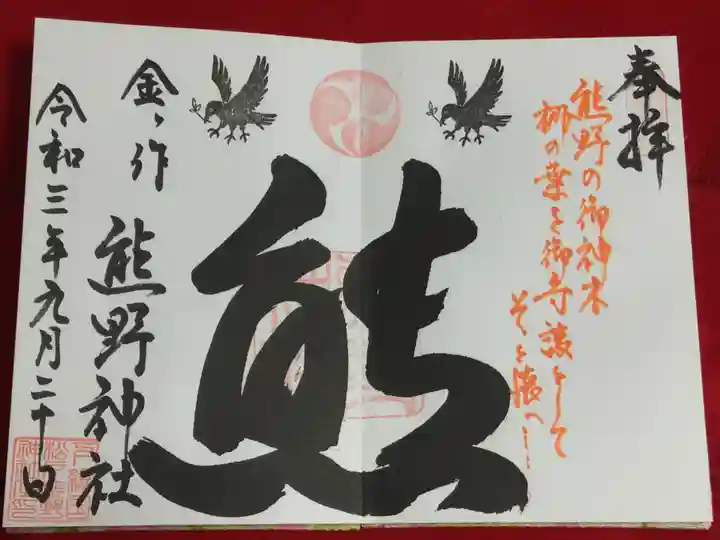 奉拝
熊野の御神木
梛の葉を御守護として
そを懐へ…
熊
金ヶ作
熊野神社
令和三年九月二十日